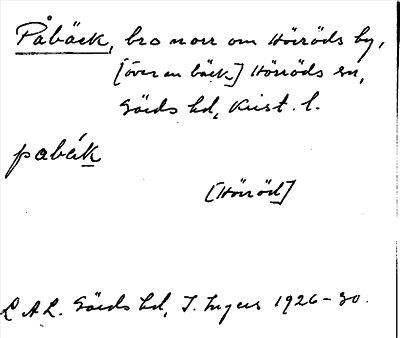 Påbäck, bro norr om Hörröds by,
[över en bäck] Hörröds sn,
Gärds hd, Krist. l.
pabäk
[Hörröd]
L A L. Gärds hd, I. Ingers 1926-30.